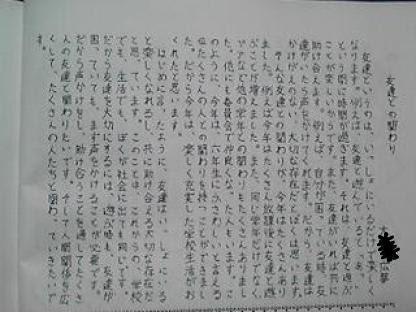 友達との関わり
広夢
友達というのは、いっしょにいるだけで楽しく
なります。例えば、友達と遊んでいると「あっ」
という間に時間が過ぎます。それは、友達と遊ぶ
ことが楽しいからです。また、友達がいれば共に
助け合えます。例えば、自分が困っている時、友
達がいたら声をかけてくれます。だから、友達は
かけがえのない、大切な存在だとぼくは思います。
そんな友達との関わりが、今年はたくさんあり
ました。例えば、今年はたくさん放課後に友達と遊
ぶことが増えました。また、同じ学年だけでなく、
など他の学年との関わりもたくさんありまし
た。他にも委員会で仲良くなった人もいます。こ
のように、今年は、六年生にふさわしいと言える
位たくさんの人との関わりを持つことができまし
た。だから今年は、楽しく充実した学校生活がお
くれたと思います。
はじめに言ったように、友達は、いっしょにいる
と楽しくなれるし、共に助け合える大切な存在だ
と思っています。このことは、これからの、学校
でも、生活でも、ぼくが社会に出ても同じです。
だから友達を大切にするには、遊ぶ時も、友達が
困っていても、まず声をかけることが必要です。
だから声かけをし、助け合うことを通してたくさ
んの友達と関わりたいです。そして、人間関係を広
くして、たくさんの人たちと関わっていきたいで
す。